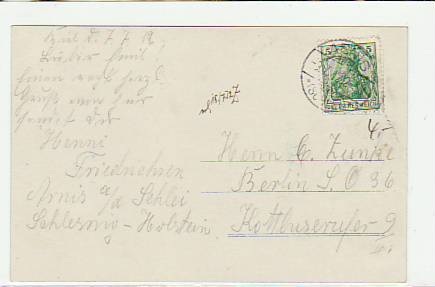 Lieber Emil!
Einen recht herzl.
Gruß von hier
sendet Dir
Henni
Friedrichsen
Arnis a/d Schlei
Schleswig-Holstein
DEUTSCHES REICH
4,-
Herrn G. Zunke
Berlin S.O 36
Kottbuserufer 9